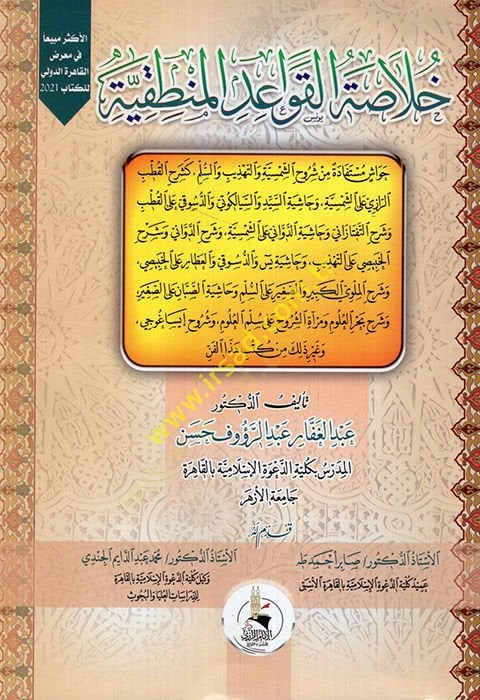 الأكثر مبيعا
في معرض
القاهرة الدولي
للكتاب 2021
خُلاصَةُ القَوَاعِدِ المَنطِقِيَّةِ
حواشٍ مستفادة من شروح الشمسية والتهذيب والسلم، كشرح القطب
الرازي على الشمسية، وحاشية السيد والسيالكوتي والدسوقي على القطب
وشرح التفتازاني وحاشية الدواني على الشمسية، وشرح الدواني وشرح
الخبيصي على التهذيب، وحاشية يس والدسوقي والعطار على الخبيصي،
وشرح الملوي الكبير والصغير على السلم وحاشية الصبان على الصغير،
وشرح بحر العلوم ومرآة الشروح على سلم العلوم، وشروح إيساغوجي،
وغير ذلك من كتب هذا الفن
تأليف الدكتور
عبد الغفار عبد الرؤوف حسن
المدرس بكلية الدعوة الإسلامية بالقاهرة
جامعة الأزهر
قدم له
الأستاذ الدكتور/ صابر أحمد طه
عميد كلية الدعوة الإسلامية بالقاهرة الأسبق
الأستاذ الدكتور/ محمد عبد الدايم الجندي
وكيل كلية الدعوة الإسلامية بالقاهرة
للدراسات العليا والبحوث
الإمام الرازي
www.irsad.com.tr